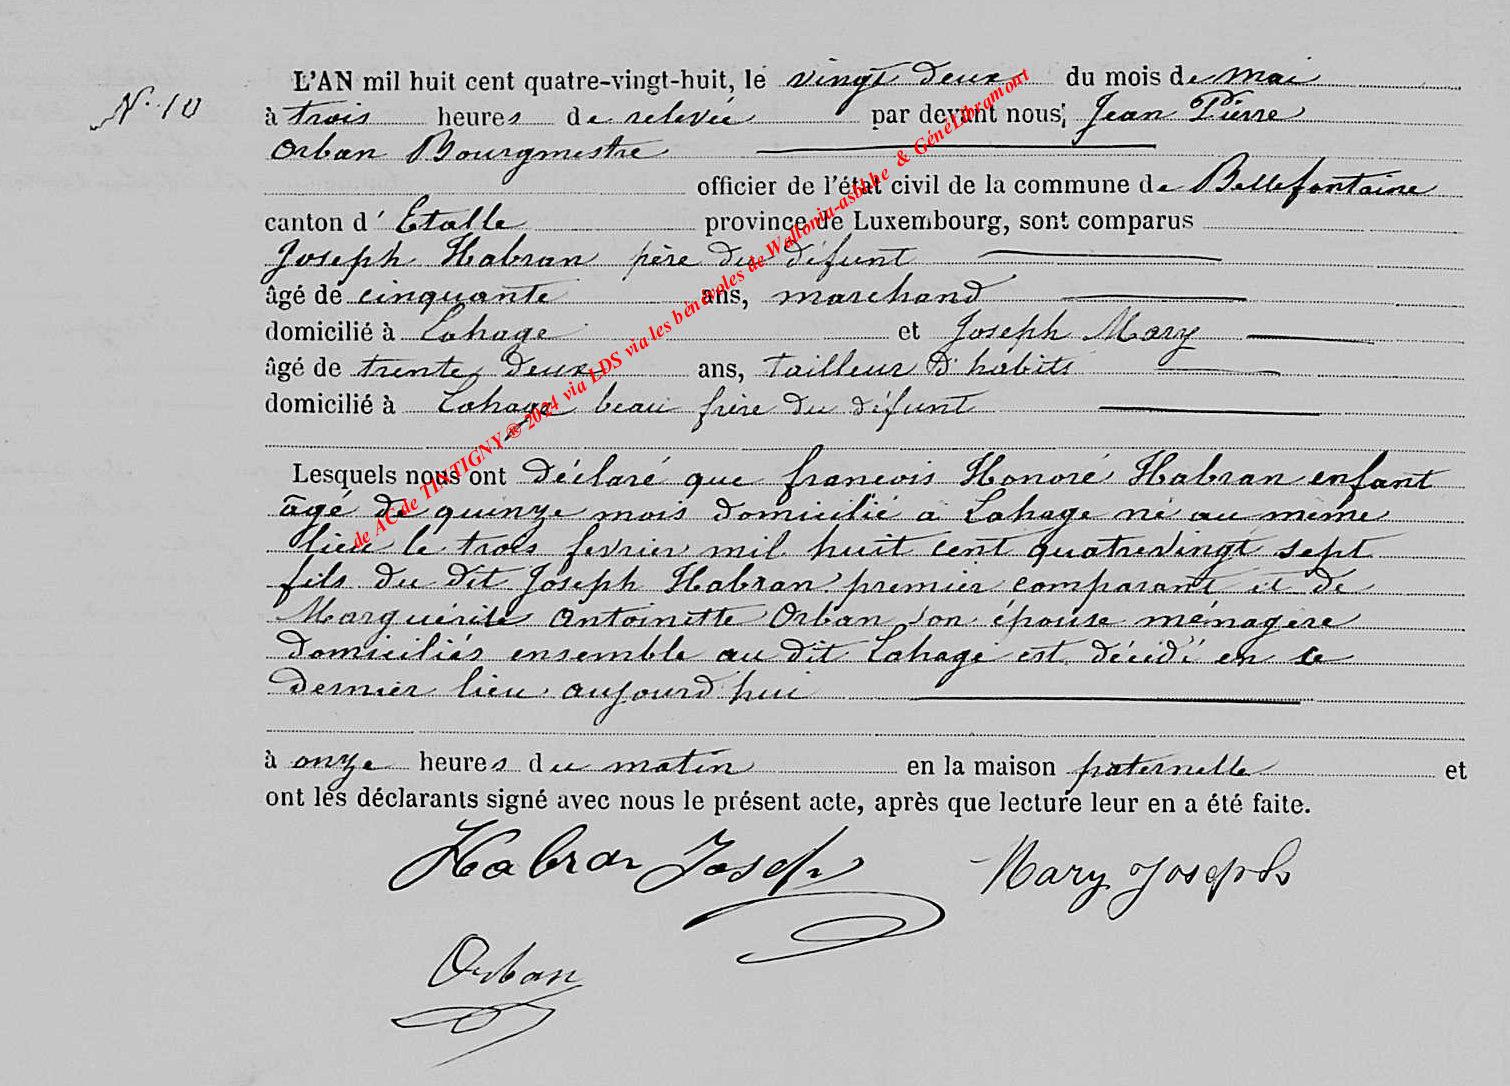 N. 10
L'AN mil huit cent quatre-vingt-huit, le vingt deux du mois de mai
à trois heures de relevée par devant nous; Jean Pierre
Orban Bourgmestre
officier de l'état civil de la commune de Bellefontaine
canton d' Etalle province de Luxembourg, sont comparus
Joseph Habran père du défunt
âgé de cinquante ans, marchand
domicilié à Lahage et Joseph Mary
âgé de trente deux ans, tailleur d'habits
domicilié à Lahage beau frère du défunt
Lesquels nous ont déclaré que françois Honoré Habran enfant
âgé de quinze mois domicilié à Lahage né au même
lieu le trois fevrier mil huit cent quatrevingt sept
fils du dit Joseph Habran premier comparant et de
Marguérite Antoinette Orban son épouse ménagère
domiciliés ensemble au dit Lahage est décédé en ce
dernier lieu aujourd'hui
à onze heures du matin en la maison paternelle et
ont les déclarants signé avec nous le présent acte, après que lecture leur en a été faite.
Habran Joseph Mary Joseph
Orban
de AC de TINTIGNY ® 2024 via LDS via les bénévoles de Wallonia-asbl.be & GénéLibramont